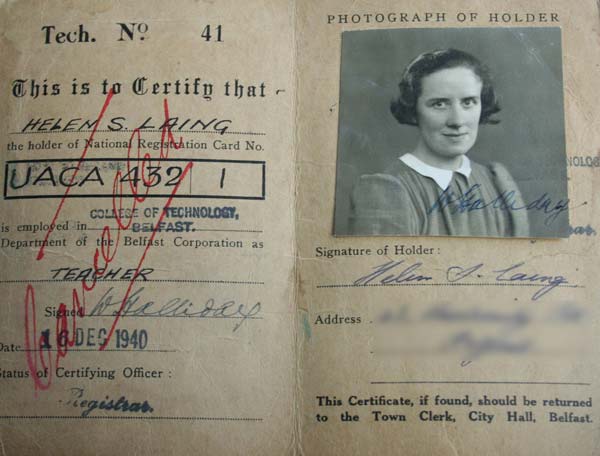 Tech. Nº 41
This is to Certify that
HELEN S. LAING
the holder of National Registration Card No.
UACA 432 1
is employed in COLLEGE OF TECHNOLOGY, BELFAST.
Department of the Belfast Corporation as
TEACHER
Signed W Halliday
Date 16 DEC 1940
Status of Certifying Officer :
Registrar.
Cancelled
PHOTOGRAPH OF HOLDER
W Halliday
Signature of Holder :
Helen S. Laing
Address
This Certificate, if found, should be returned
to the Town Clerk, City Hall, Belfast.